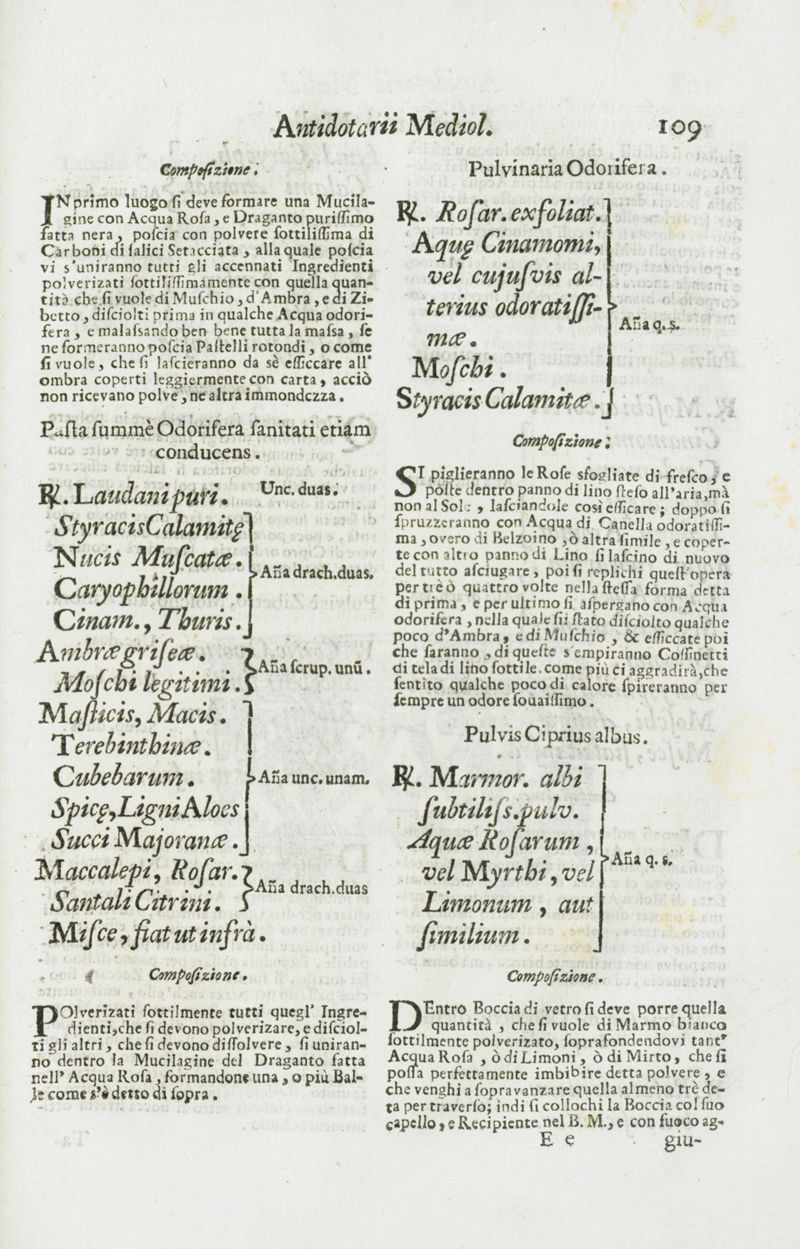 Antidotarii Mediol. 109
Compoſizione.
IN primo luogo ſi deve formare una Mucila-
gine con Acqua Roſa, e Draganto puriſſimo
fatta nera, poſcia con polvere ſottiliſſima di
Carboni di ſalici Setacciata, alla quale poſcia
vi s'uniranno tutti gli accennati Ingredienti
polverizati ſottiliſſimamente con quella quan-
tità che ſi vuole di Muſchio, d'Ambra, e di Zi-
betto, diſciolti prima in qualche Acqua odori-
fera, e malaſsando ben bene tutta la maſsa, ſe
ne formeranno poſcia Paſtelli rotondi, o come
ſi vuole, che ſi laſcieranno da sè eſſiccare all'
ombra coperti leggiermente con carta, acciò
non ricevano polve, ne altra immondezza.
Paſta ſummè Odorifera ſanitati etiam
conducens.
℞. Laudani puri. Unc. duas.
Styracis Calamitę
Nucis Muſcatæ.
Caryophillorum.
Cinam., Thuris.
Aña drach. duas.
Ambræ griſeæ.
Moſchi legitimi.
Aña ſcrup. unũ.
Maſticis, Macis.
Terebinthinæ.
Cubebarum.
Spicę, Ligni Aloes
Succi Majoranæ.
Aña unc. unam.
Maccalepi, Roſar.
Santali Citrini.
Aña drach. duas
Miſce, fiat ut infrà.
Compoſizione.
POlverizati ſottilmente tutti quegl' Ingre-
dienti, che ſi devono polverizare, e diſciol-
ti gli altri, che ſi devono diſſolvere, ſi uniran-
no dentro la Mucilagine del Draganto fatta
nell' Acqua Roſa, formandone una, o più Bal-
le come s'è detto di ſopra.
Pulvinaria Odorifera.
℞. Roſar. exfoliat.
Aquę Cinamomi,
vel cujuſvis al-
terius odoratiſſi-
mæ.
Moſchi.
Styracis Calamitæ.
Aña q. s.
Compoſizione:
SI piglieranno le Roſe sfogliate di freſco, e
poſte dentro panno di lino ſteſo all'aria, mà
non al Sol:, laſciandole così eſſicare; doppo ſi
ſpruzzeranno con Acqua di Canella odoratiſſi-
ma, overo di Belzoino, ò altra ſimile, e coper-
te con altro panno di Lino ſi laſcino di nuovo
del tutto aſciugare, poi ſi replichi queſt'opera
per trè ò quattro volte nella ſteſſa forma detta
di prima, e per ultimo ſi aſpergano con Acqua
odorifera, nella quale ſii ſtato diſciolto qualche
poco d'Ambra, e di Muſchio, & eſſiccate poi
che ſaranno, di queſte s'empiranno Coſſinetti
di tela di lino ſottile. come più ci aggradirà, che
ſentito qualche poco di calore ſpireranno per
ſempre un odore ſouaiſſimo.
Pulvis Ciprius albus.
℞. Marmor. albi
ſubtiliſs. pulv.
Aquæ Roſarum,
vel Myrthi, vel
Limonum, aut
ſimilium.
Aña q. s.
Compoſizione.
DEntro Boccia di vetro ſi deve porre quella
quantità, che ſi vuole di Marmo bianco
ſottilmente polverizato, ſoprafondendovi tant'
Acqua Roſa, ò di Limoni, ò di Mirto, che ſi
poſſa perfettamente imbibire detta polvere, e
che venghi a ſopravanzare quella almeno trè de-
ta per traverſo; indi ſi collochi la Boccia col ſuo
capello, e Recipiente nel B. M., e con fuoco ag-
E e giu-